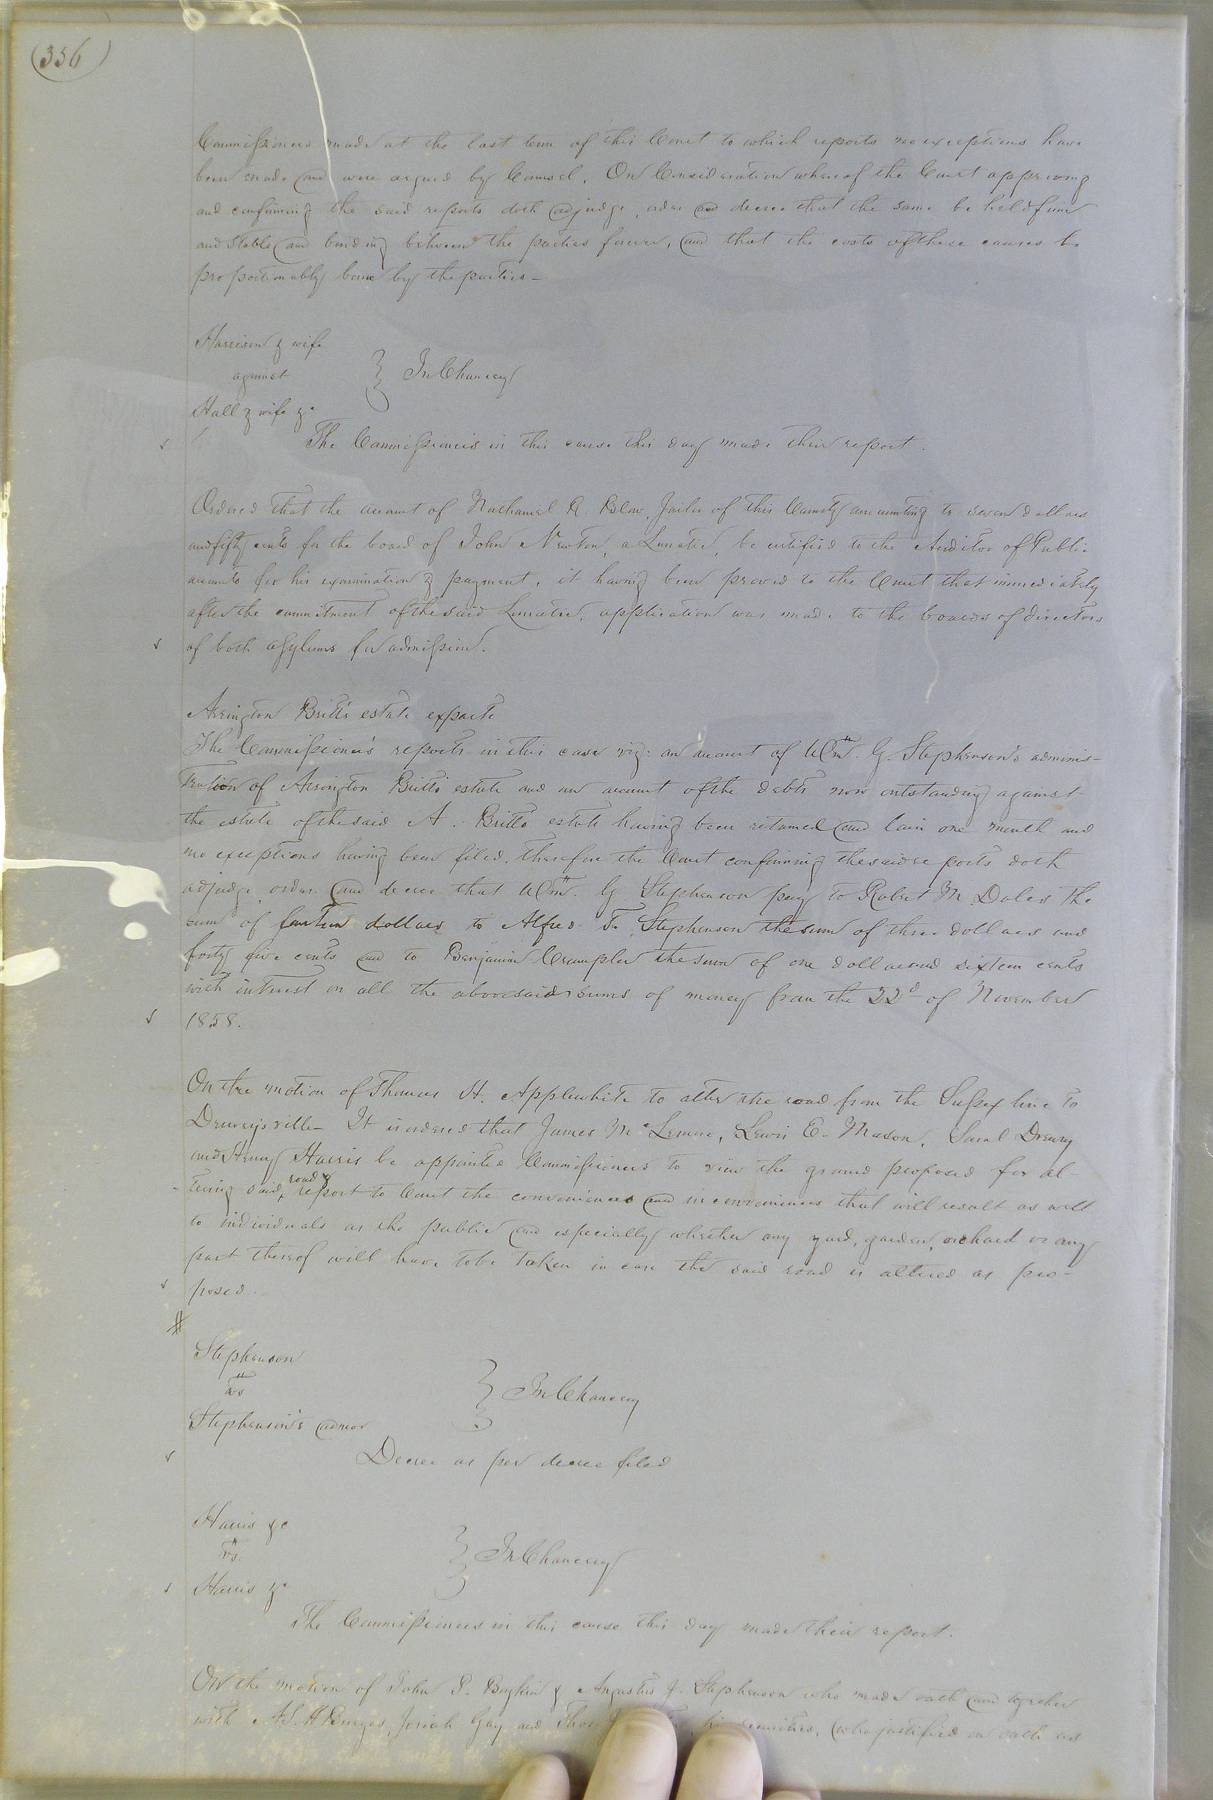 (356)
Commissioners made at the last term of this Court to which reports no exceptions have
been made and were argued by Counsel. On Consideration whereof the Court approving
and confirming the said reports doth adjudge, order and decree that the same be held firm
and stable and binding between the parties forever, and that the costs of these causes be
proportionably borne by the parties—
Harrison & wife
against } In Chancery
Hall & wife &c
The Commissioners in this cause this day made their report.
Ordered that the account of Nathaniel R Blow, Jailor of this County amounting to seven dollars
and fifty cents for the board of John Newton, a Lunatic, be certified to the Auditor of Public
accounts for his examination & payment, it having been proved to the Court that immediately
after the commitment of the said Lunatic, application was made to the boards of directors
of both asylums for admission.
Arrington Britt's estate exparte
The Commissioner's reports in this case viz: an account of Wm. G. Stephenson's adminis-
tration of Arrington Britts estate and an account of the debts now outstanding against
the estate of the said A. Britts estate having been returned and lain one month and
no exceptions having been filed, therefore the Court confirming the said reports doth
adjudge, order and decree that Wm. G Stephenson pay to Robert M Dales the
sum of fourteen dollars to Alfred T. Stephenson the sum of three dollars and
forty five cents and to Benjamin Crumpler the sum of one dollar and sixteen cents
with interest on all the abovesaid sums of money from the 22d of November
1858.
On the motion of Thomas H. Applewhite to alter the road from the Sussex line to
Drewrysville— It is ordered that James McLemore, Lewis E. Mason, Saml Drewry
and Henry Harris be appointed Commissioners to view the ground proposed for al-
tering said road & report to Court the conveniences and inconveniences that will result as well
to individuals as the public and especially whether any yard, garden, orchard or any
part thereof will have to be taken in case the said road is altered as pro-
posed.
Stephenson
vs } In Chancery
Stephenson's admor
Decree as per decree filed
Harris &c
vs. } In Chancery
Harris &c
The Commissioners in this cause this day made their report.
On the motion of John P. Boykin & Augustus J. Stephenson who made oath and together
with A. S. H Burges, Josiah Gay and Thos securities, (who justified on oath as